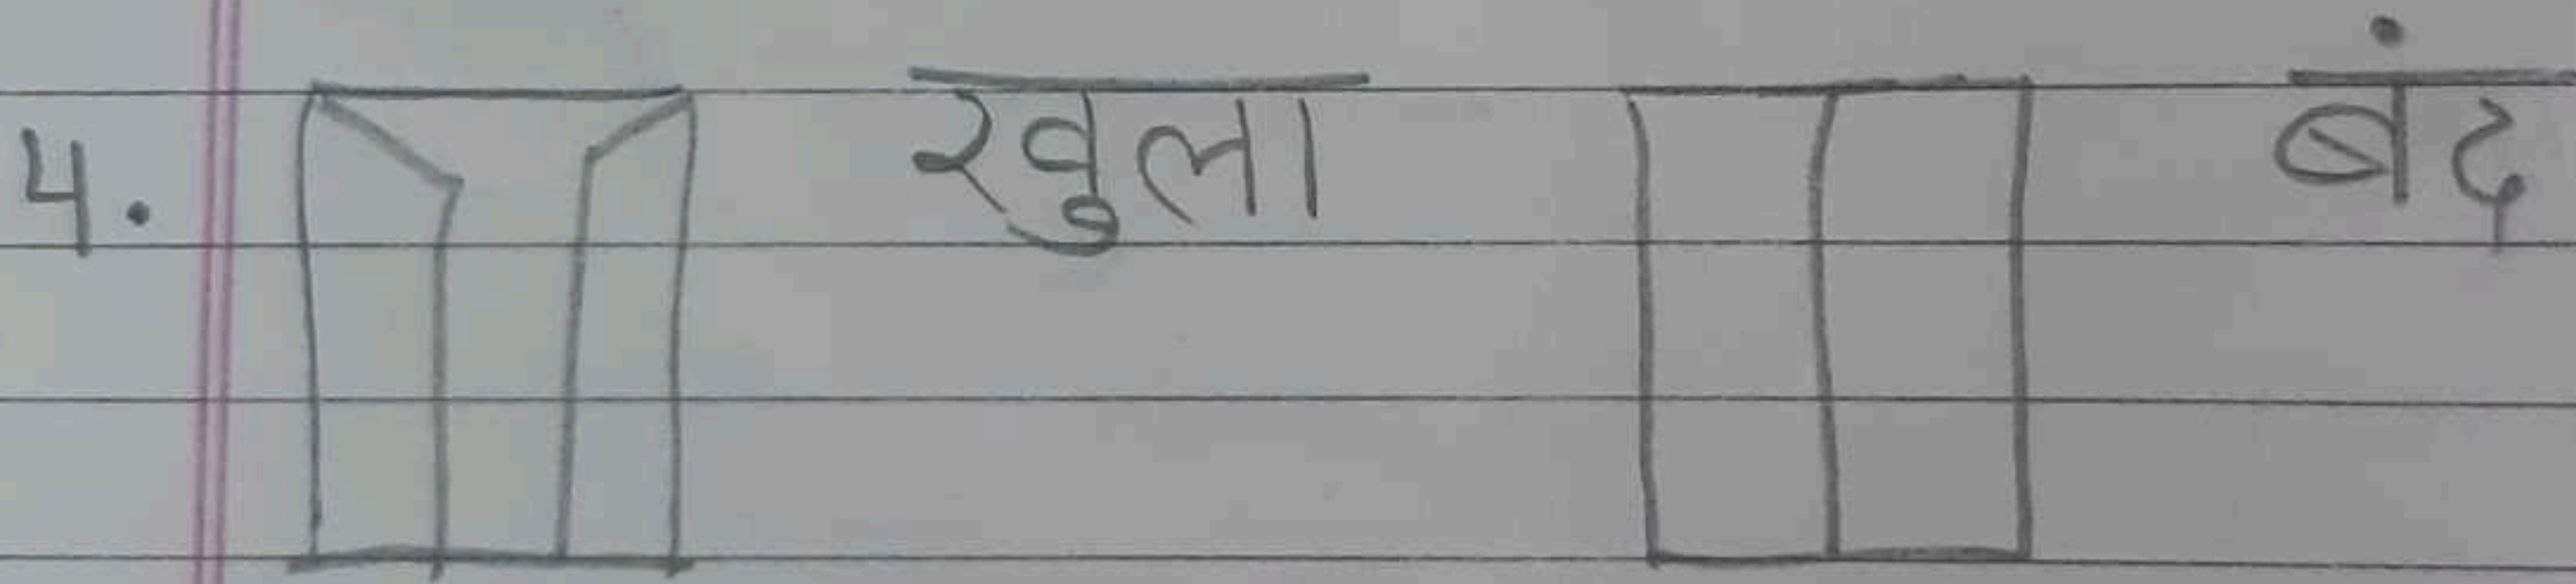 4. खुला बंद